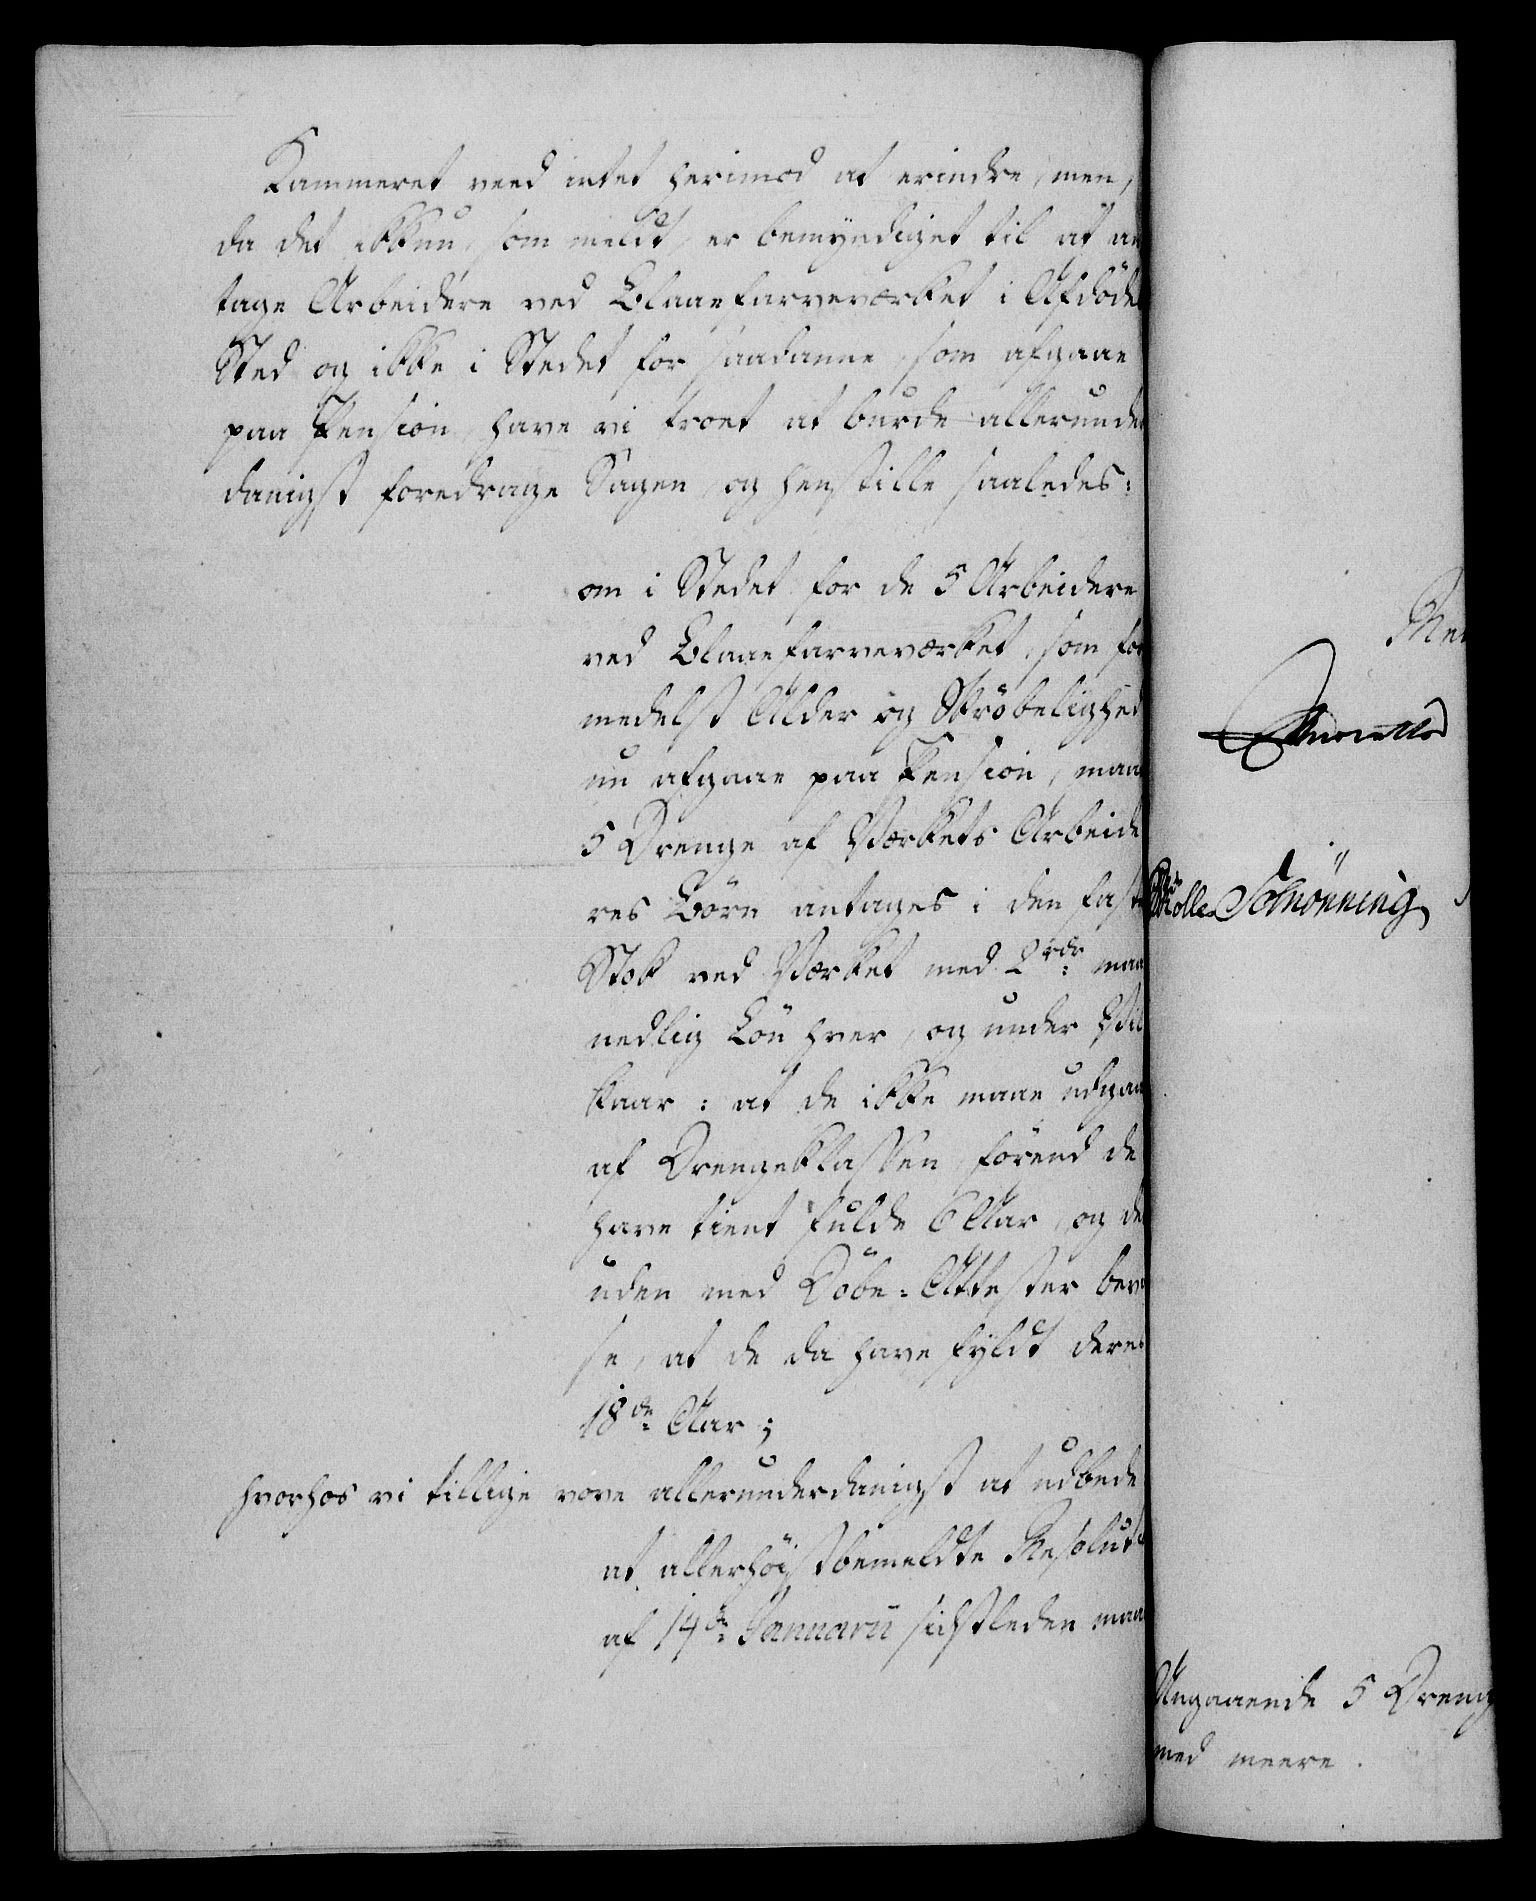 Kammeret veed intet herimod at erindre, men,
da det ikkun, som meldt, er bemyndiget til at an
tage Arbeidere ved Blaaefarveværket i Afdödes
Sted og ikke i Stedet for saadanne, som afgaae
paa Pension, have vi troet at burde allerunder
danigst foredrage Sagen, og henstille saaledes:
om i Stedet for de 5 Arbeidere
ved Blaaefarveværket, som for
medelst Alder og Skröbelighed
nu afgaae paa Pension, maae
5 Drenge af Værkets Arbeide
res Börn antages i den faste
Stok ved Værket med 2 rdr: maa
nedlig Lön hver, og under Vil
kaar: at de ikke maae udgaae
af Drengeklassen, förend de
have tient fulde 6 Aar, og des
uden med Döbe=Attester bevi
se, at de da have fyldt deres
18de Aar;
hvorhos vi tillige vove allerunderdanigst at udbede
at allerhöistbemeldte Resolut
af 14de Januarii sidstleden maa
Schönning
Angaaende 5 Dreng
med meere.